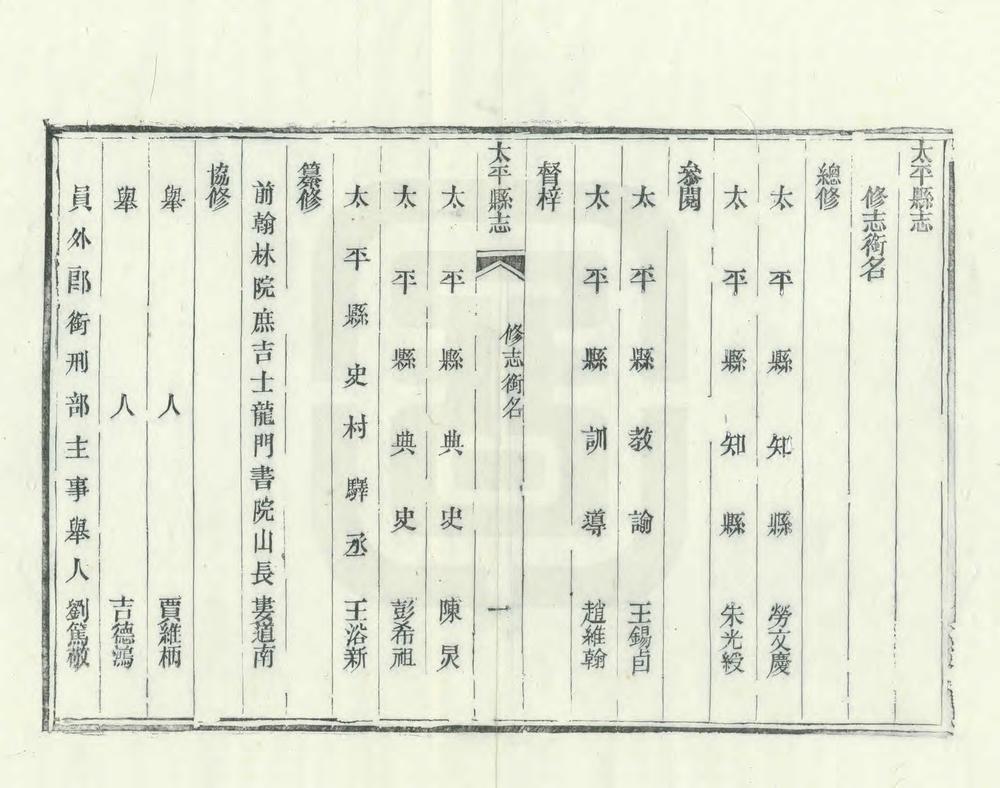 太平縣志
修志銜名
總修
太平縣知縣 勞文慶
太平縣知縣 朱光綬
參閱
太平縣教諭 王錫卣
太平縣訓導 趙維翰
督梓
太平縣志 修志銜名 一
太平縣典史 陳炅
太平縣典史 彭希祖
太平縣史村驛丞 王浴新
纂修
前翰林院庶吉士龍門書院山長婁道南
協修
舉人 賈維柄
舉人 吉德鴻
員外郎銜刑部主事舉人劉篤敬